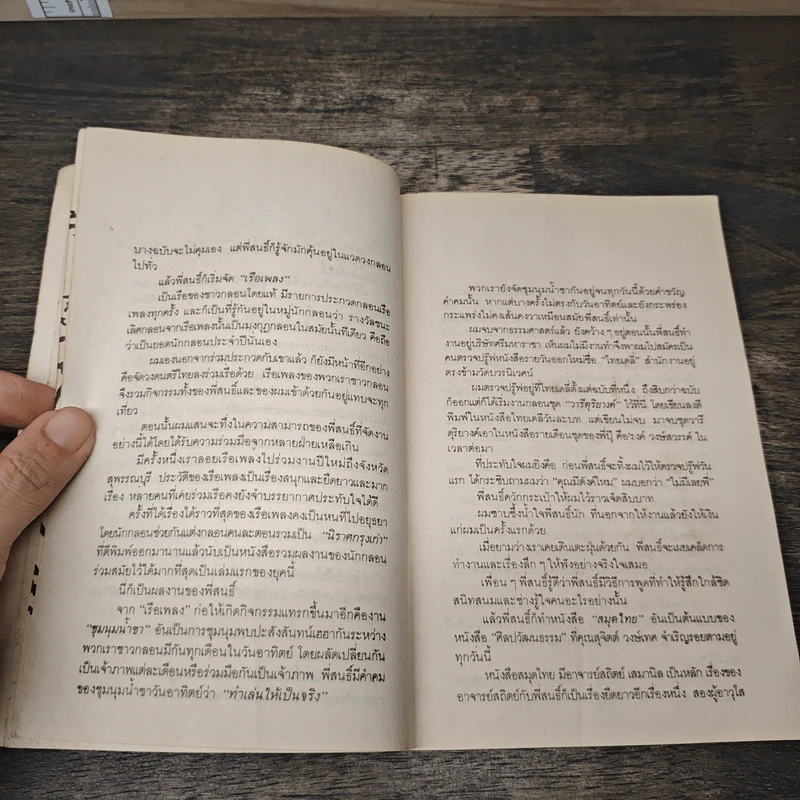 บางฉบับจะไม่คุมเอง แต่พี่สนธิ์ก็รู้จักมักคุ้นอยู่ในแวดวงกลอน
ไปทั่ว
แล้วพี่สนธิ์ก็เริ่มจัด "เรือเพลง"
เป็นเรือของชาวกลอนโดยแท้ มีรายการประกวดกลอนเรือ
เพลงทุกครั้ง และก็เป็นที่รู้กันอยู่ในหมู่นักกลอนว่า รางวัลชนะ
เลิศกลอนจากเรือเพลงนั้นเป็นมงกุฎกลอนในสมัยนั้นทีเดียว คือถือ
ว่าเป็นยอดนักกลอนประจำปีนั้นเอง
ผมเองนอกจากร่วมประกวดกับเขาแล้ว ก็ยังมีหน้าที่อีกอย่าง
คือจัดวงดนตรีไทยลงร่วมเรือด้วย เรือเพลงของพวกเราชาวกลอน
จึงรวมกิจกรรมทั้งของพี่สนธิ์และของผมเข้าด้วยกันอยู่แทบจะทุก
เที่ยว
ตอนนั้นผมแสนจะทึ่งในความสามารถของพี่สนธิ์ที่จัดงาน
อย่างนี้ได้โดยได้รับความร่วมมือจากหลายฝ่ายเหลือเกิน
มีครั้งหนึ่งเราลอยเรือเพลงไปร่วมงานปีใหม่ถึงจังหวัด
สุพรรณบุรี ประวัติของเรือเพลงเป็นเรื่องสนุกและยืดยาวและมาก
เรื่อง หลายคนที่เคยร่วมเรือคงยังจำบรรยากาศประทับใจได้ดี
ครั้งที่ได้เรื่องได้ราวที่สุดของเรือเพลงคงเป็นหนที่ไปอยุธยา
โดยนักกลอนช่วยกันแต่งกลอนคนละตอนรวมเป็น "นิราศกรุงเก่า"
ที่ตีพิมพ์ออกมานานแล้วนับเป็นหนังสือรวมผลงานของนักกลอน
ร่วมสมัยไว้ได้มากที่สุดเป็นเล่มแรกของยุคนี้
นี่ก็เป็นผลงานของพี่สนธิ์
จาก "เรือเพลง" ก่อให้เกิดกิจกรรมแทรกขึ้นมาอีกคืองาน
"ชุมนุมน้ำชา" อันเป็นการชุมนุมพบปะสังสันทน์เฮฮากันระหว่าง
พวกเราชาวกลอนมีกันทุกเดือนในวันอาทิตย์ โดยผลัดเปลี่ยนกัน
เป็นเจ้าภาพแต่ละเดือนหรือร่วมมือกันเป็นเจ้าภาพ พี่สนธิ์มีคำคม
ของชุมนุมน้ำชาวันอาทิตย์ว่า "ทำเล่นให้เป็นจริง"
พวกเรายังจัดชุมนุมน้ำชากันอยู่จนทุกวันนี้ด้วยคำขวัญ
คำคมนั้น หากแต่บางครั้งไม่ตรงกับวันอาทิตย์และยังกระพร่อง
กระแพร่งไม่คงเส้นคงวาเหมือนสมัยพี่สนธิ์เท่านั้น
ผมจบจากธรรมศาสตร์แล้ว ยังคว้าง ๆ อยู่ตอนนั้นพี่สนธิ์ทำ
งานอยู่บริษัทศรีมหาราชา เห็นผมไม่มีงานทำจึงพาผมไปสมัครเป็น
คนตรวจปรู๊ฟหนังสือรายวันออกใหม่ชื่อ "ไทยเดลี่" สำนักงานอยู่
ตรงข้ามวัดบวรนิเวศน์
ผมตรวจปรู๊ฟอยู่ที่ไทยเดลี่ตั้งแต่ฉบับที่หนึ่ง ถึงสิบกว่าฉบับ
ก็ออกแต่ก็ได้เริ่มงานกลอนชุด "วารีดุริยางค์" ไว้ที่นี่ โดยเขียนลงตี
พิมพ์ในหนังสือไทยเดลี่วันละบท แต่เขียนไม่จบ มาจบชุดวารี
ดุริยางค์เอาในหนังสือรายเดือนชุดของพี่ปุ๊ คือ'รงค์ วงษ์สวรรค์ ใน
เวลาต่อมา
ที่ประทับใจผมยิ่งคือ ก่อนพี่สนธิ์จะทิ้งผมไว้ให้ตรวจปรู๊ฟวัน
แรก ได้กระซิบถามผมว่า "คุณมีตังค์ไหม" ผมบอกว่า "ไม่มีเลยพี่"
พี่สนธิ์ควักกระเป๋าให้ผมไว้ราวเจ็ดสิบบาท
ผมซาบซึ้งน้ำใจพี่สนธิ์นัก ที่นอกจากให้งานแล้วยังให้เงิน
แก่ผมเป็นครั้งแรกด้วย
เมื่อยามว่างเราเคยเดินเตะฝุ่นด้วยกัน พี่สนธิ์จะเผยเคล็ดการ
ทำงานและเรื่องลึก ๆ ให้ฟังอย่างจริงใจเสมอ
เพื่อน ๆ พี่สนธิ์รู้ดีว่าพี่สนธิ์มีวิธีการพูดที่ทำให้รู้สึกใกล้ชิด
สนิทสนมและช่างรู้ใจคนอะไรอย่างนั้น
แล้วพี่สนธิ์ก็ทำหนังสือ "สมุดไทย" อันเป็นต้นแบบของ
หนังสือ "ศิลปวัฒนธรรม" ที่คุณสุจิตต์ วงษ์เทศ จำเริญรอยตามอยู่
ทุกวันนี้
หนังสือสมุดไทย มีอาจารย์สถิตย์ เสมานิล เป็นหลัก เรื่องของ
อาจารย์สถิตย์กับพี่สนธิ์ก็เป็นเรื่องยืดยาวอีกเรื่องหนึ่ง สองผู้อาวุโส